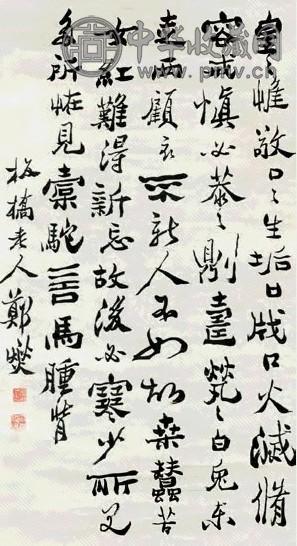 皇〻惟敬口〻生垢口戕口火滅脩
容戒慎必恭〻則壽煢〻白兔東
走西顧衣不新人不如故桑蠶苦
女紅難得新忘故後必寒少所見
多所怪見橐駝言馬腫背
板橋老人鄭燮
中华收藏网